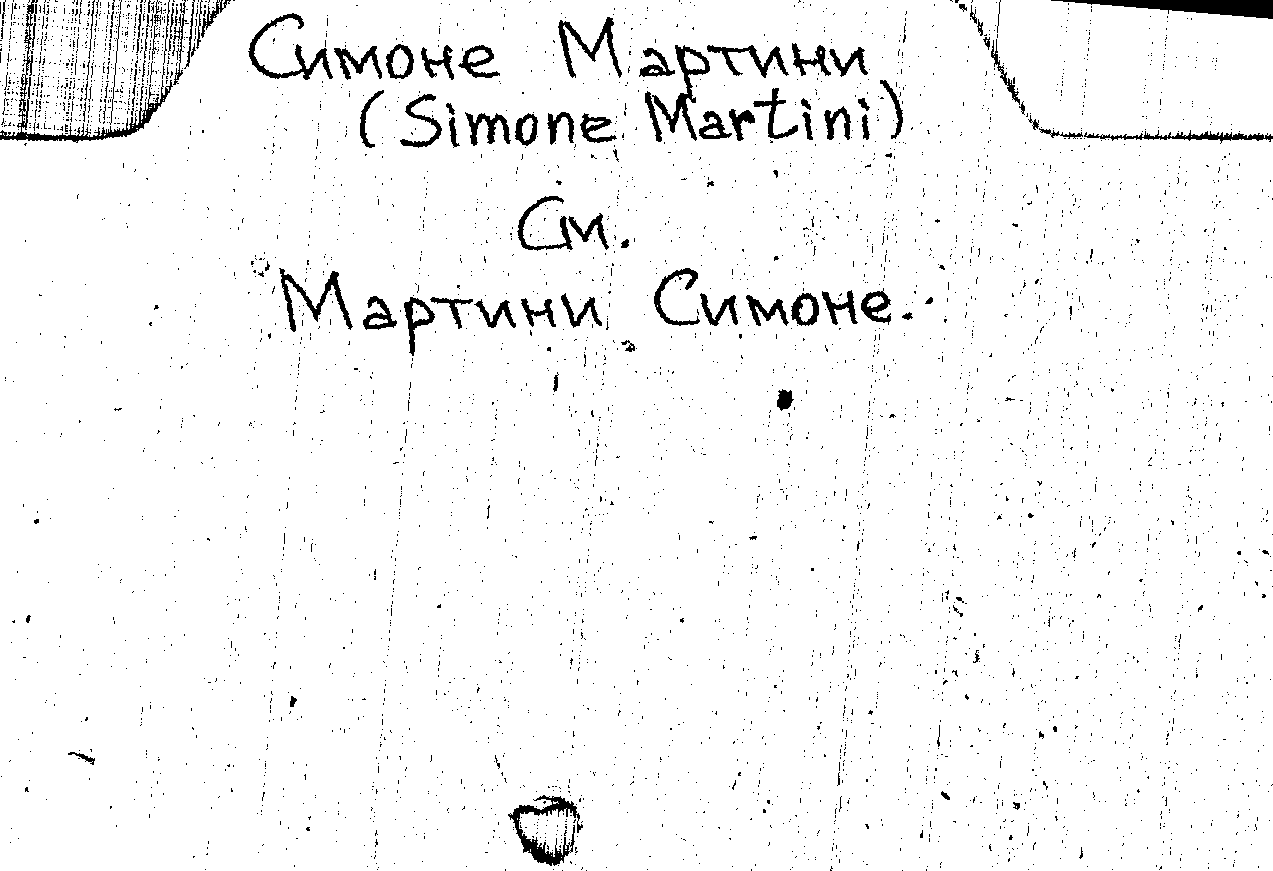 Симоне Мартини
(Simone Martini)
См.
Мартини Симоне.